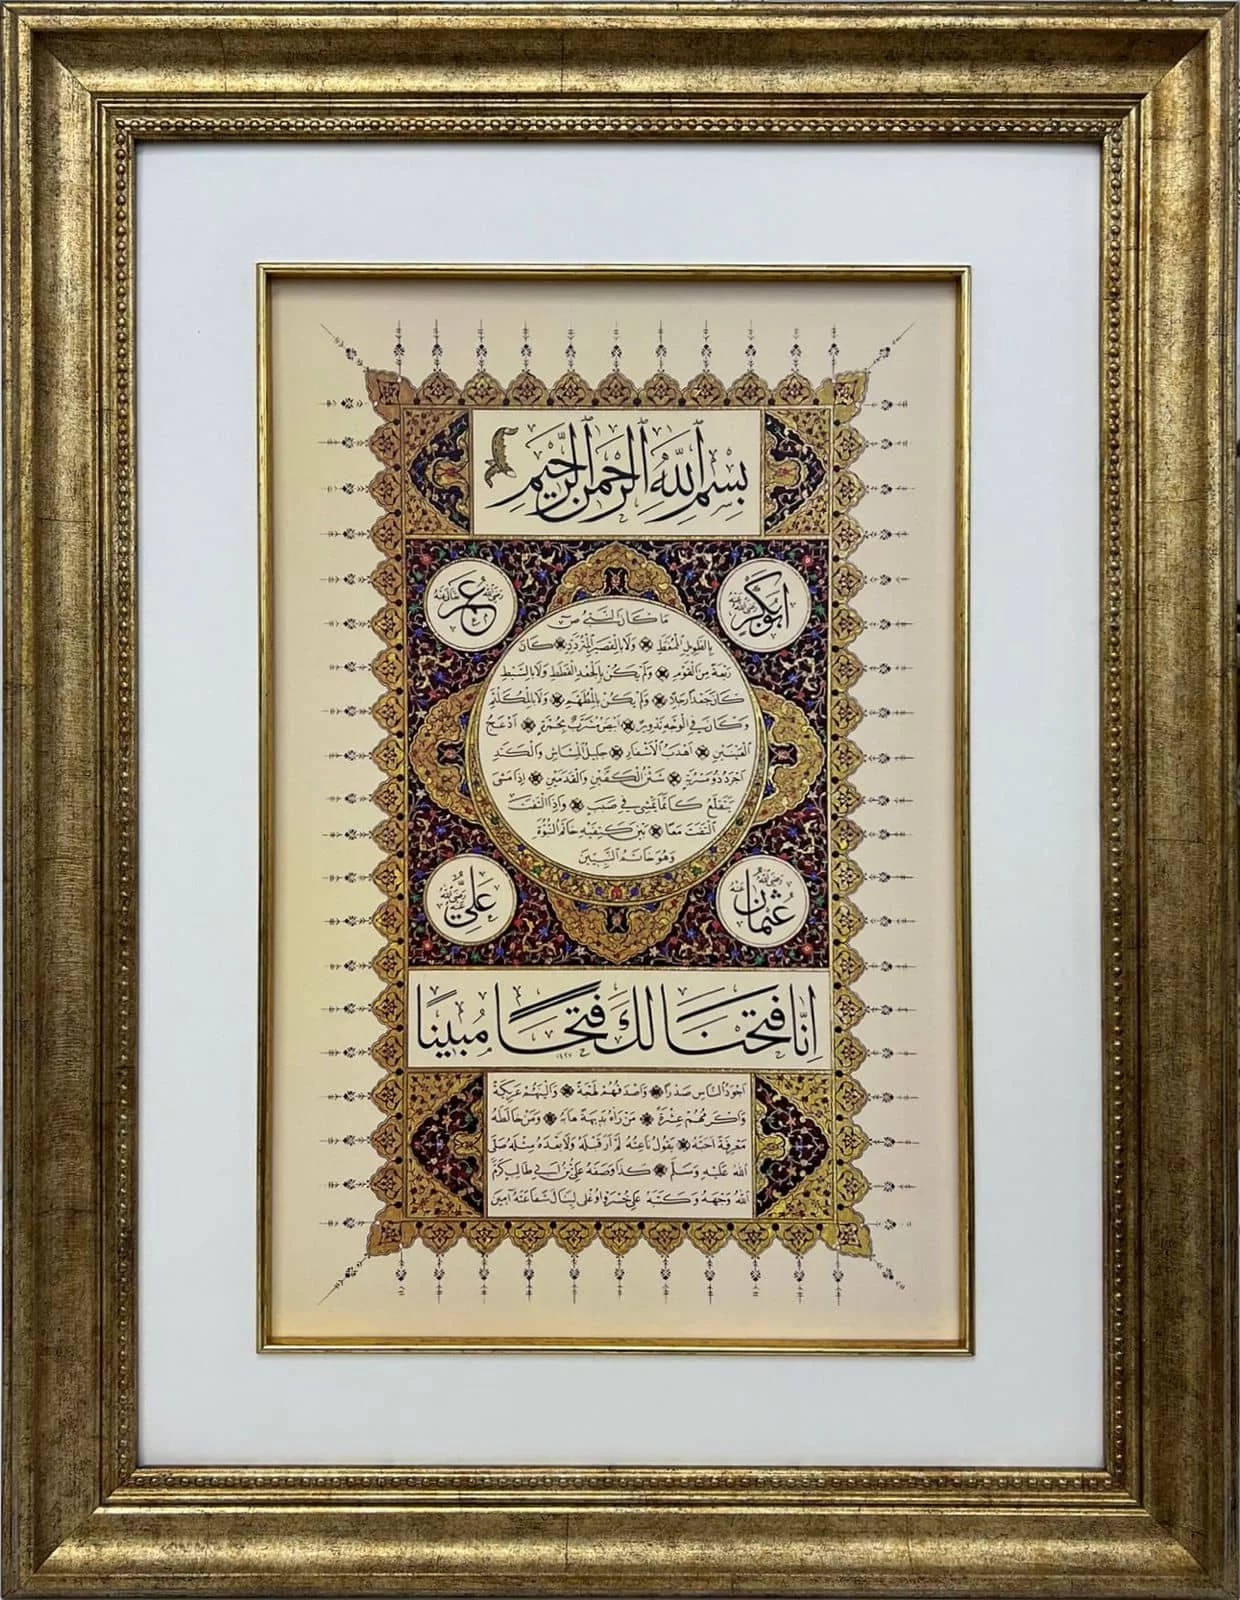 بِسْمِ اللَّهِ الرَّحْمٰنِ الرَّحِيمِ
ابو بكر رضى الله عنه
عمر رضى الله تعالى عنه
مَا كَانَ النَّبِيُّ ص
بِالطَّوِيلِ الْمُمَّغِطِ وَلَا بِالْقَصِيرِ الْمُتَرَدِّدِ كَانَ
رَبْعَةً مِنَ الْقَوْمِ وَلَمْ يَكُنْ بِالْجَعْدِ الْقَطَطِ وَلَا بِالسَّبْطِ
كَانَ جَعْدًا رَجِلًا وَلَمْ يَكُنْ بِالْمُطَهَّمِ وَلَا بِالْمُكَلْثَمِ
وَكَانَ فِي الْوَجْهِ تَدْوِيرٌ اَبْيَضُ مُشْرَبٌ بِحُمْرَةٍ اَدْعَجُ
الْعَيْنَيْنِ اَهْدَبُ الْاَشْفَارِ جَلِيلُ الْمُشَاشِ وَالْكَتَدِ
اَجْرَدُ ذُو مَسْرُبَةٍ شَثْنُ الْكَفَّيْنِ وَالْقَدَمَيْنِ اِذَا مَشَى
يَتَقَلَّعُ كَاَنَّمَا يَمْشِي فِي صَبَبٍ وَاِذَا الْتَفَتَ
الْتَفَتَ مَعًا بَيْنَ كَتِفَيْهِ خَاتَمُ النُّبُوَّةِ
وَهُوَ خَاتَمُ النَّبِيِّينَ
عثمان رضى الله عنه
على رضى الله عنه
اِنَّا فَتَحْنَا لَكَ فَتْحًا مُبِينًا
اَجْوَدُ النَّاسِ صَدْرًا وَاَصْدَقُهُمْ لَهْجَةً وَاَلْيَنُهُمْ عَرِيكَةً
وَاَكْرَمُهُمْ عِشْرَةً مَنْ رَاٰهُ بَدِيهَةً هَابَهُ وَمَنْ خَالَطَهُ
مَعْرِفَةً اَحَبَّهُ يَقُولُ نَاعِتُهُ لَمْ اَرَ قَبْلَهُ وَلَا بَعْدَهُ مِثْلَهُ صَلَّى
اللهُ عَلَيْهِ وَسَلَّمَ كَذَا وَصَفَهُ عَلِيُّ بْنُ اَبِي طَالِبٍ كَرَّمَ
اللهُ وَجْهَهُ وَكَتَبَهُ عَلِي خُسْرَو اوُغْلِي لِيَنَالَ شَفَاعَتَهُ اٰمِينَ